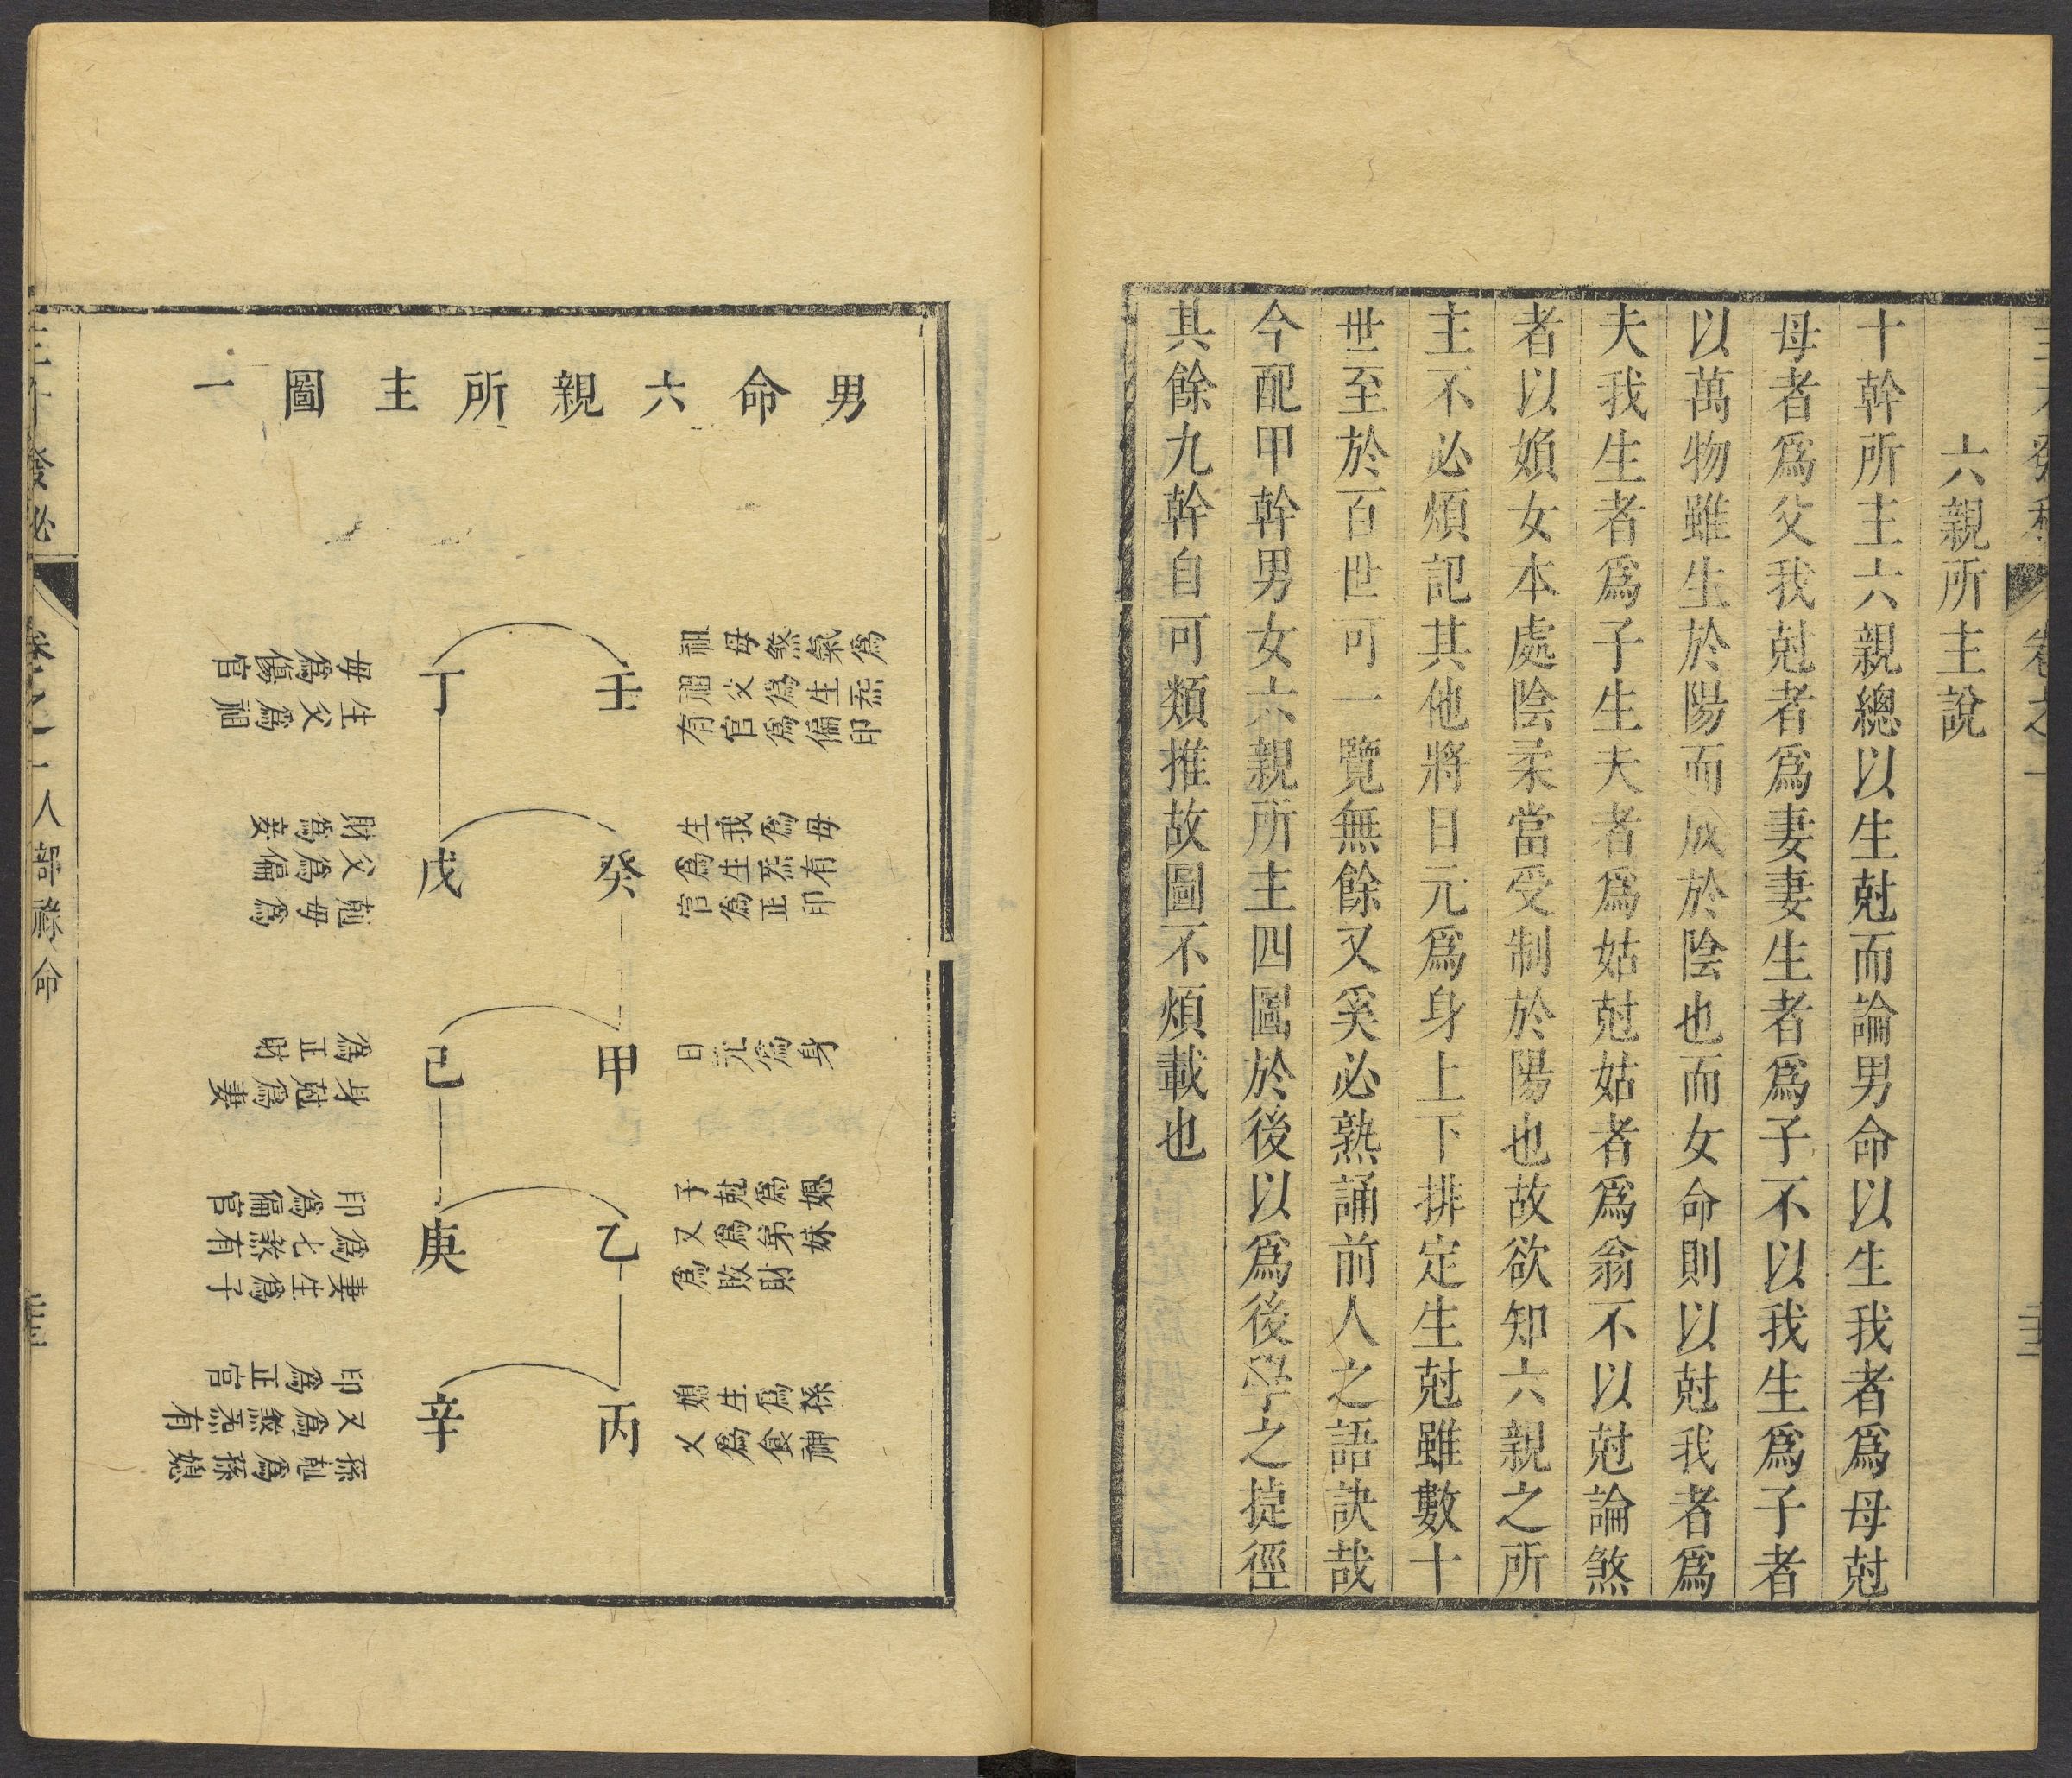 六親所主說
十幹所主六親總以生尅而論男命以生我者爲母尅
母者爲父我尅者爲妻妻生者爲子不以我生爲子者
以萬物雖生於陽而成於陰也而女命則以尅我者爲
夫我生者爲子生夫者爲姑尅姑者爲翁不以尅論煞
者以媍女本處陰柔當受制於陽也故欲知六親之所
主不必煩記其他將日元爲身上下排定生尅雖數十
世至於百世可一覽無餘又奚必熟誦前人之語訣哉
今配甲幹男女六親所主四圖於後以爲後學之㨗徑
其餘九幹自可類推故圖不煩載也
男命六親所主圖一
壬
祖母煞氣爲
祖父爲生炁
有官爲偏印
丁
母爲傷官
生父爲祖
癸
生我爲母
官爲生炁有
官爲正印
戊
財爲妾
父爲偏
尅母爲
甲
日元爲身
己
爲正財
身尅爲妻
乙
子尅爲媳
又爲弟妹
爲敗財
庚
印爲偏官
爲七煞有
妻生爲子
丙
媳生爲孫
又爲食神
辛
印爲正官
又爲煞炁有
孫尅爲孫媳
人部祿命